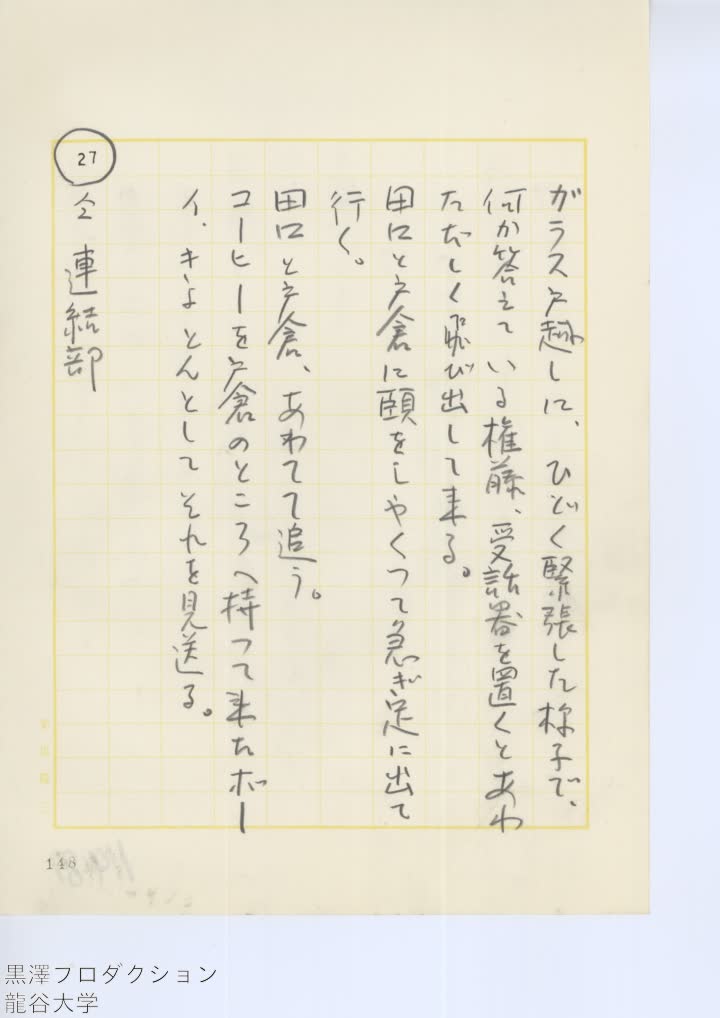 ガラス戸越しに、ひどく緊張した様子で、
何か答えている権藤、受話器を置くとあわ
ただしく飛び出して来る。
田口と戸倉に頤をしやくつて急ぎ足に出て
行く。
田口と戸倉、あわてて追う。
コーヒーを戸倉のところへ持つて来たボー
イ、きよとんとしてそれを見送る。
27
仝 連結部
148
黒澤プロダクション
龍谷大学